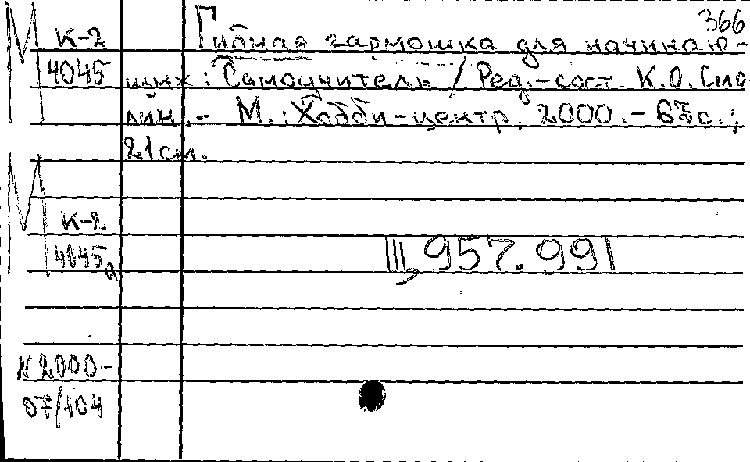 366
М К-2 Губная гармошка для начинаю-
4045 щих : Самоучитель / Ред.-сост. К.О. Смо
лин. - М. : Хобби-центр, 2000. - 67 с. ;
21 см.
М К-2
4045а III, 957.991
К 2000-
07/104